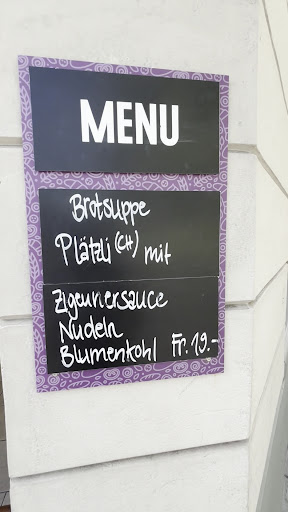 MENU
Brotsuppe
Plätzli (CH) mit
Zigeunersauce
Nudeln
Blumenkohl Fr. 19.-